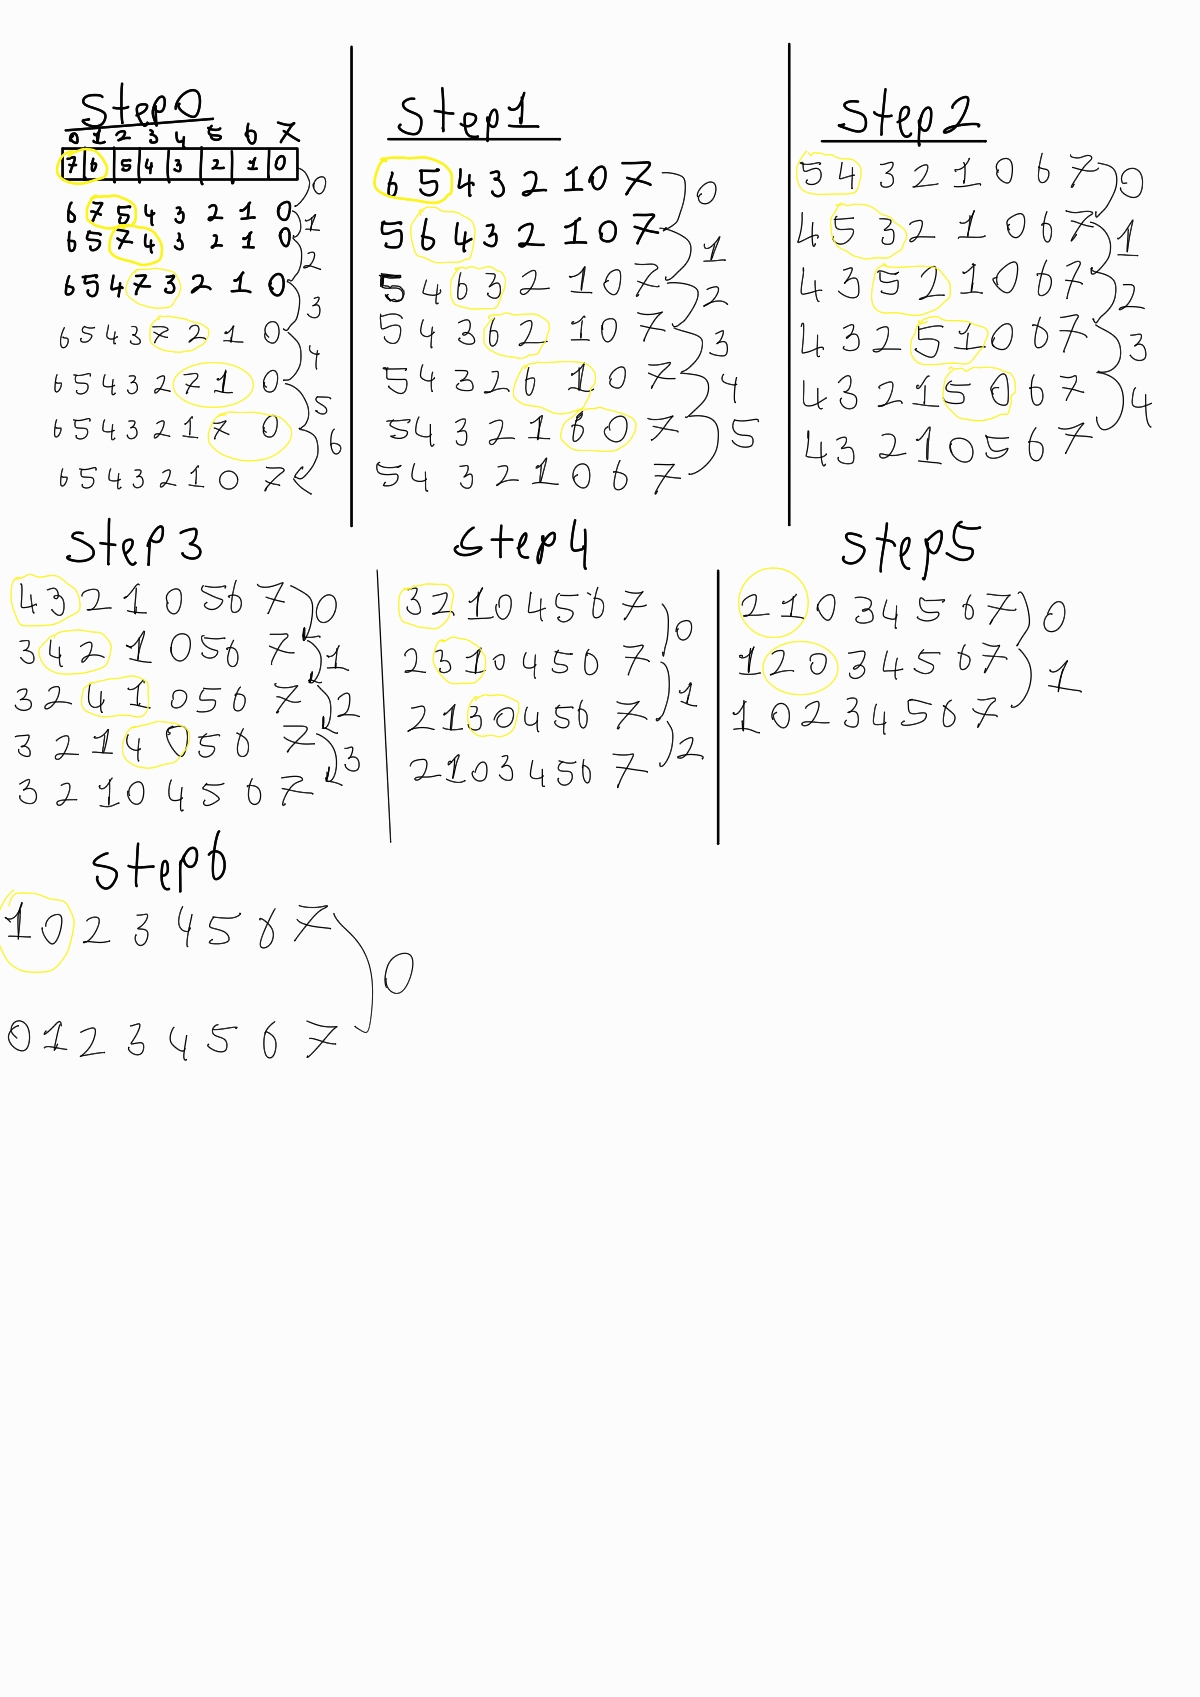 Step0
0 1 2 3 4 5 6 7
7 6 5 4 3 2 1 0
0
6 7 5 4 3 2 1 0
1
6 5 7 4 3 2 1 0
2
6 5 4 7 3 2 1 0
3
6 5 4 3 7 2 1 0
4
6 5 4 3 2 7 1 0
5
6 5 4 3 2 1 7 0
6
6 5 4 3 2 1 0 7
Step1
6 5 4 3 2 1 0 7
0
5 6 4 3 2 1 0 7
1
5 4 6 3 2 1 0 7
2
5 4 3 6 2 1 0 7
3
5 4 3 2 6 1 0 7
4
5 4 3 2 1 6 0 7
5
5 4 3 2 1 0 6 7
Step2
5 4 3 2 1 0 6 7
0
4 5 3 2 1 0 6 7
1
4 3 5 2 1 0 6 7
2
4 3 2 5 1 0 6 7
3
4 3 2 1 5 0 6 7
4
4 3 2 1 0 5 6 7
Step3
4 3 2 1 0 5 6 7
0
3 4 2 1 0 5 6 7
1
3 2 4 1 0 5 6 7
2
3 2 1 4 0 5 6 7
3
3 2 1 0 4 5 6 7
Step4
3 2 1 0 4 5 6 7
0
2 3 1 0 4 5 6 7
1
2 1 3 0 4 5 6 7
2
2 1 0 3 4 5 6 7
Step5
2 1 0 3 4 5 6 7
0
1 2 0 3 4 5 6 7
1
1 0 2 3 4 5 6 7
Step6
1 0 2 3 4 5 6 7
0
0 1 2 3 4 5 6 7